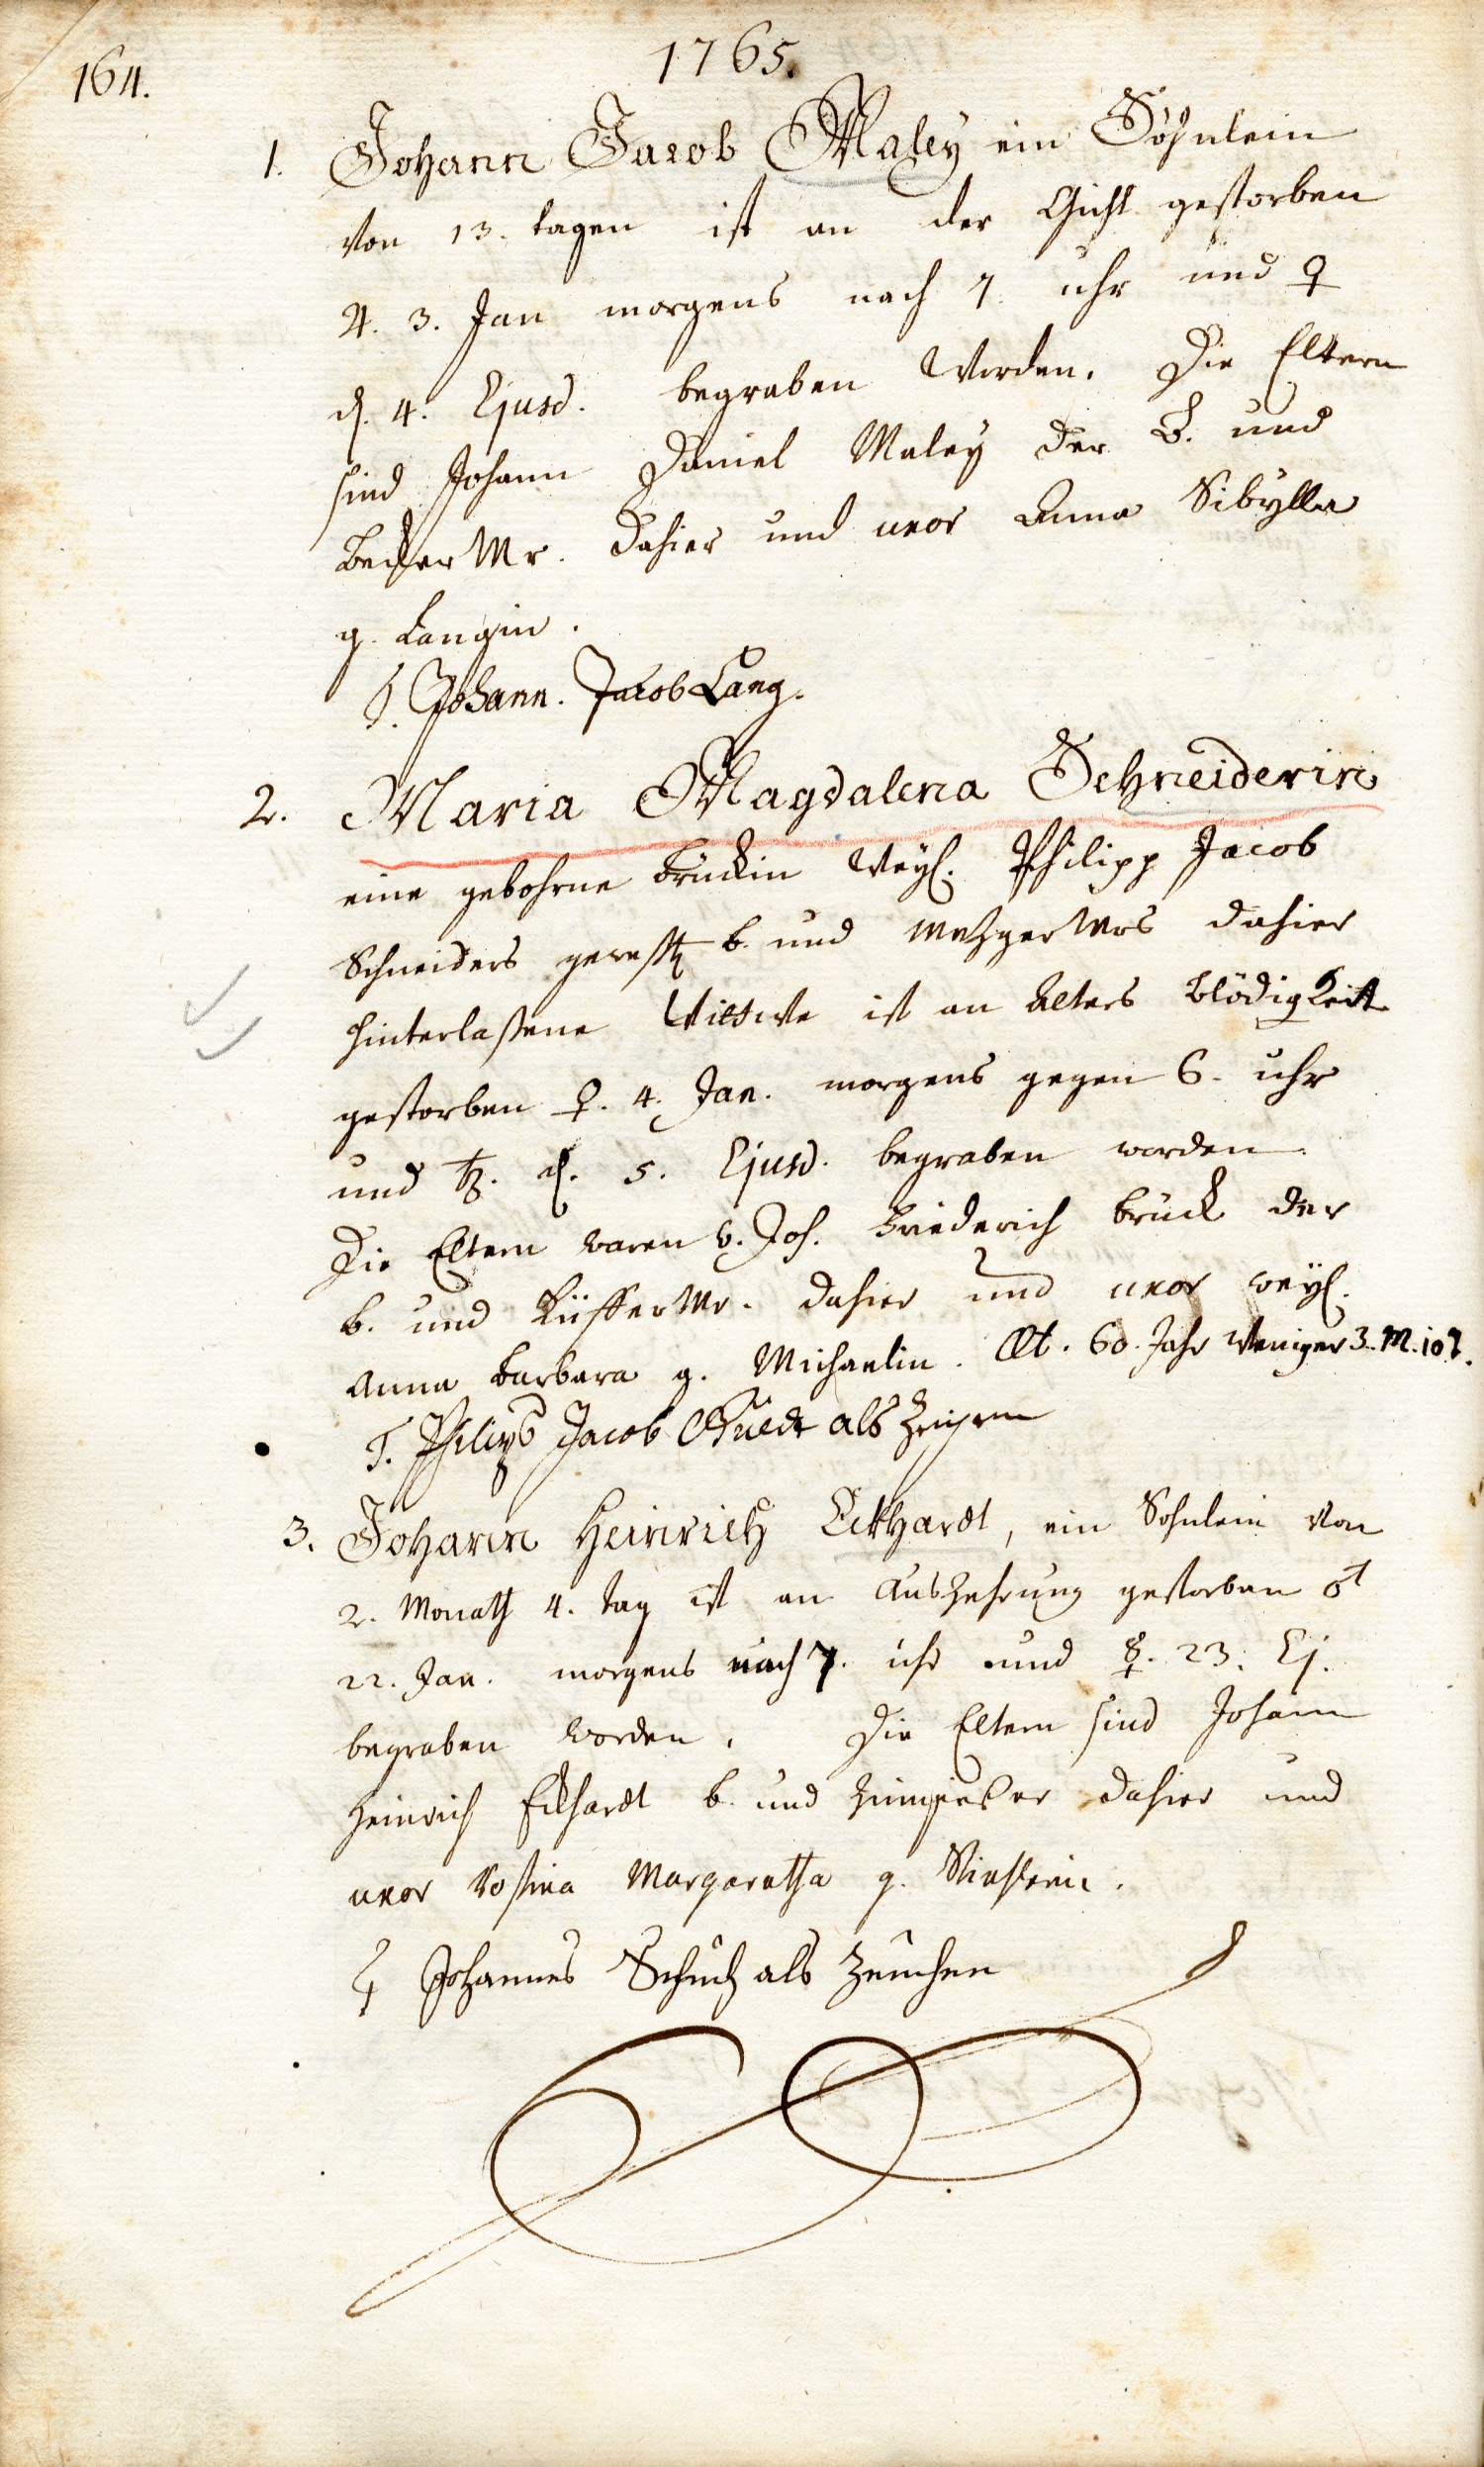 164.
1765.
1. Johann Jacob Maley ein Söhnlein
von 13. tagen ist an der Gicht gestorben
♃. 3. Jan morgens nach 7. uhr und ♀
d. 4. Ejusd. begraben worden. Die Eltern
sind Johann Daniel Maley der B. und
Becker Mr. dahier und uxor Anna Sibylla
g. Langin.
T. Johann. Jacob Lang.
2. Maria Magdalena Schneiderin
eine gebohrne Brückin weyl. Philipp Jacob
Schneiders b. und Metzger Mrs dahier
hinterlaßene Wittwe ist an Alters Blödigkeit
gestorben ♀. 4. Jan. morgens gegen 6. uhr
und ♄. d. 5. Ejusd. begraben worden.
Die Eltern waren v. Joh. Friederich Brück der
b. und Küffer Mr. dahier und uxor weyl.
Anna Barbara g. Michaelin. Æt. 60. Jahr weniger 3. M. 10 T.
T. Philips Jacob als Zeugen
3. Johann Heinrich Eckhardt, ein Sohnlein von
2. Monath 4. tag ist an Auszehrung gestorben ♂
22. Jan. morgens nach 7. uhr und ☿. 23. Ej.
begraben worden. Die Eltern sind Johann
Heinrich Eckhardt b. und dahier und
uxor Rosina Margaretha g.
T Johannes Schuch als Zeuchen